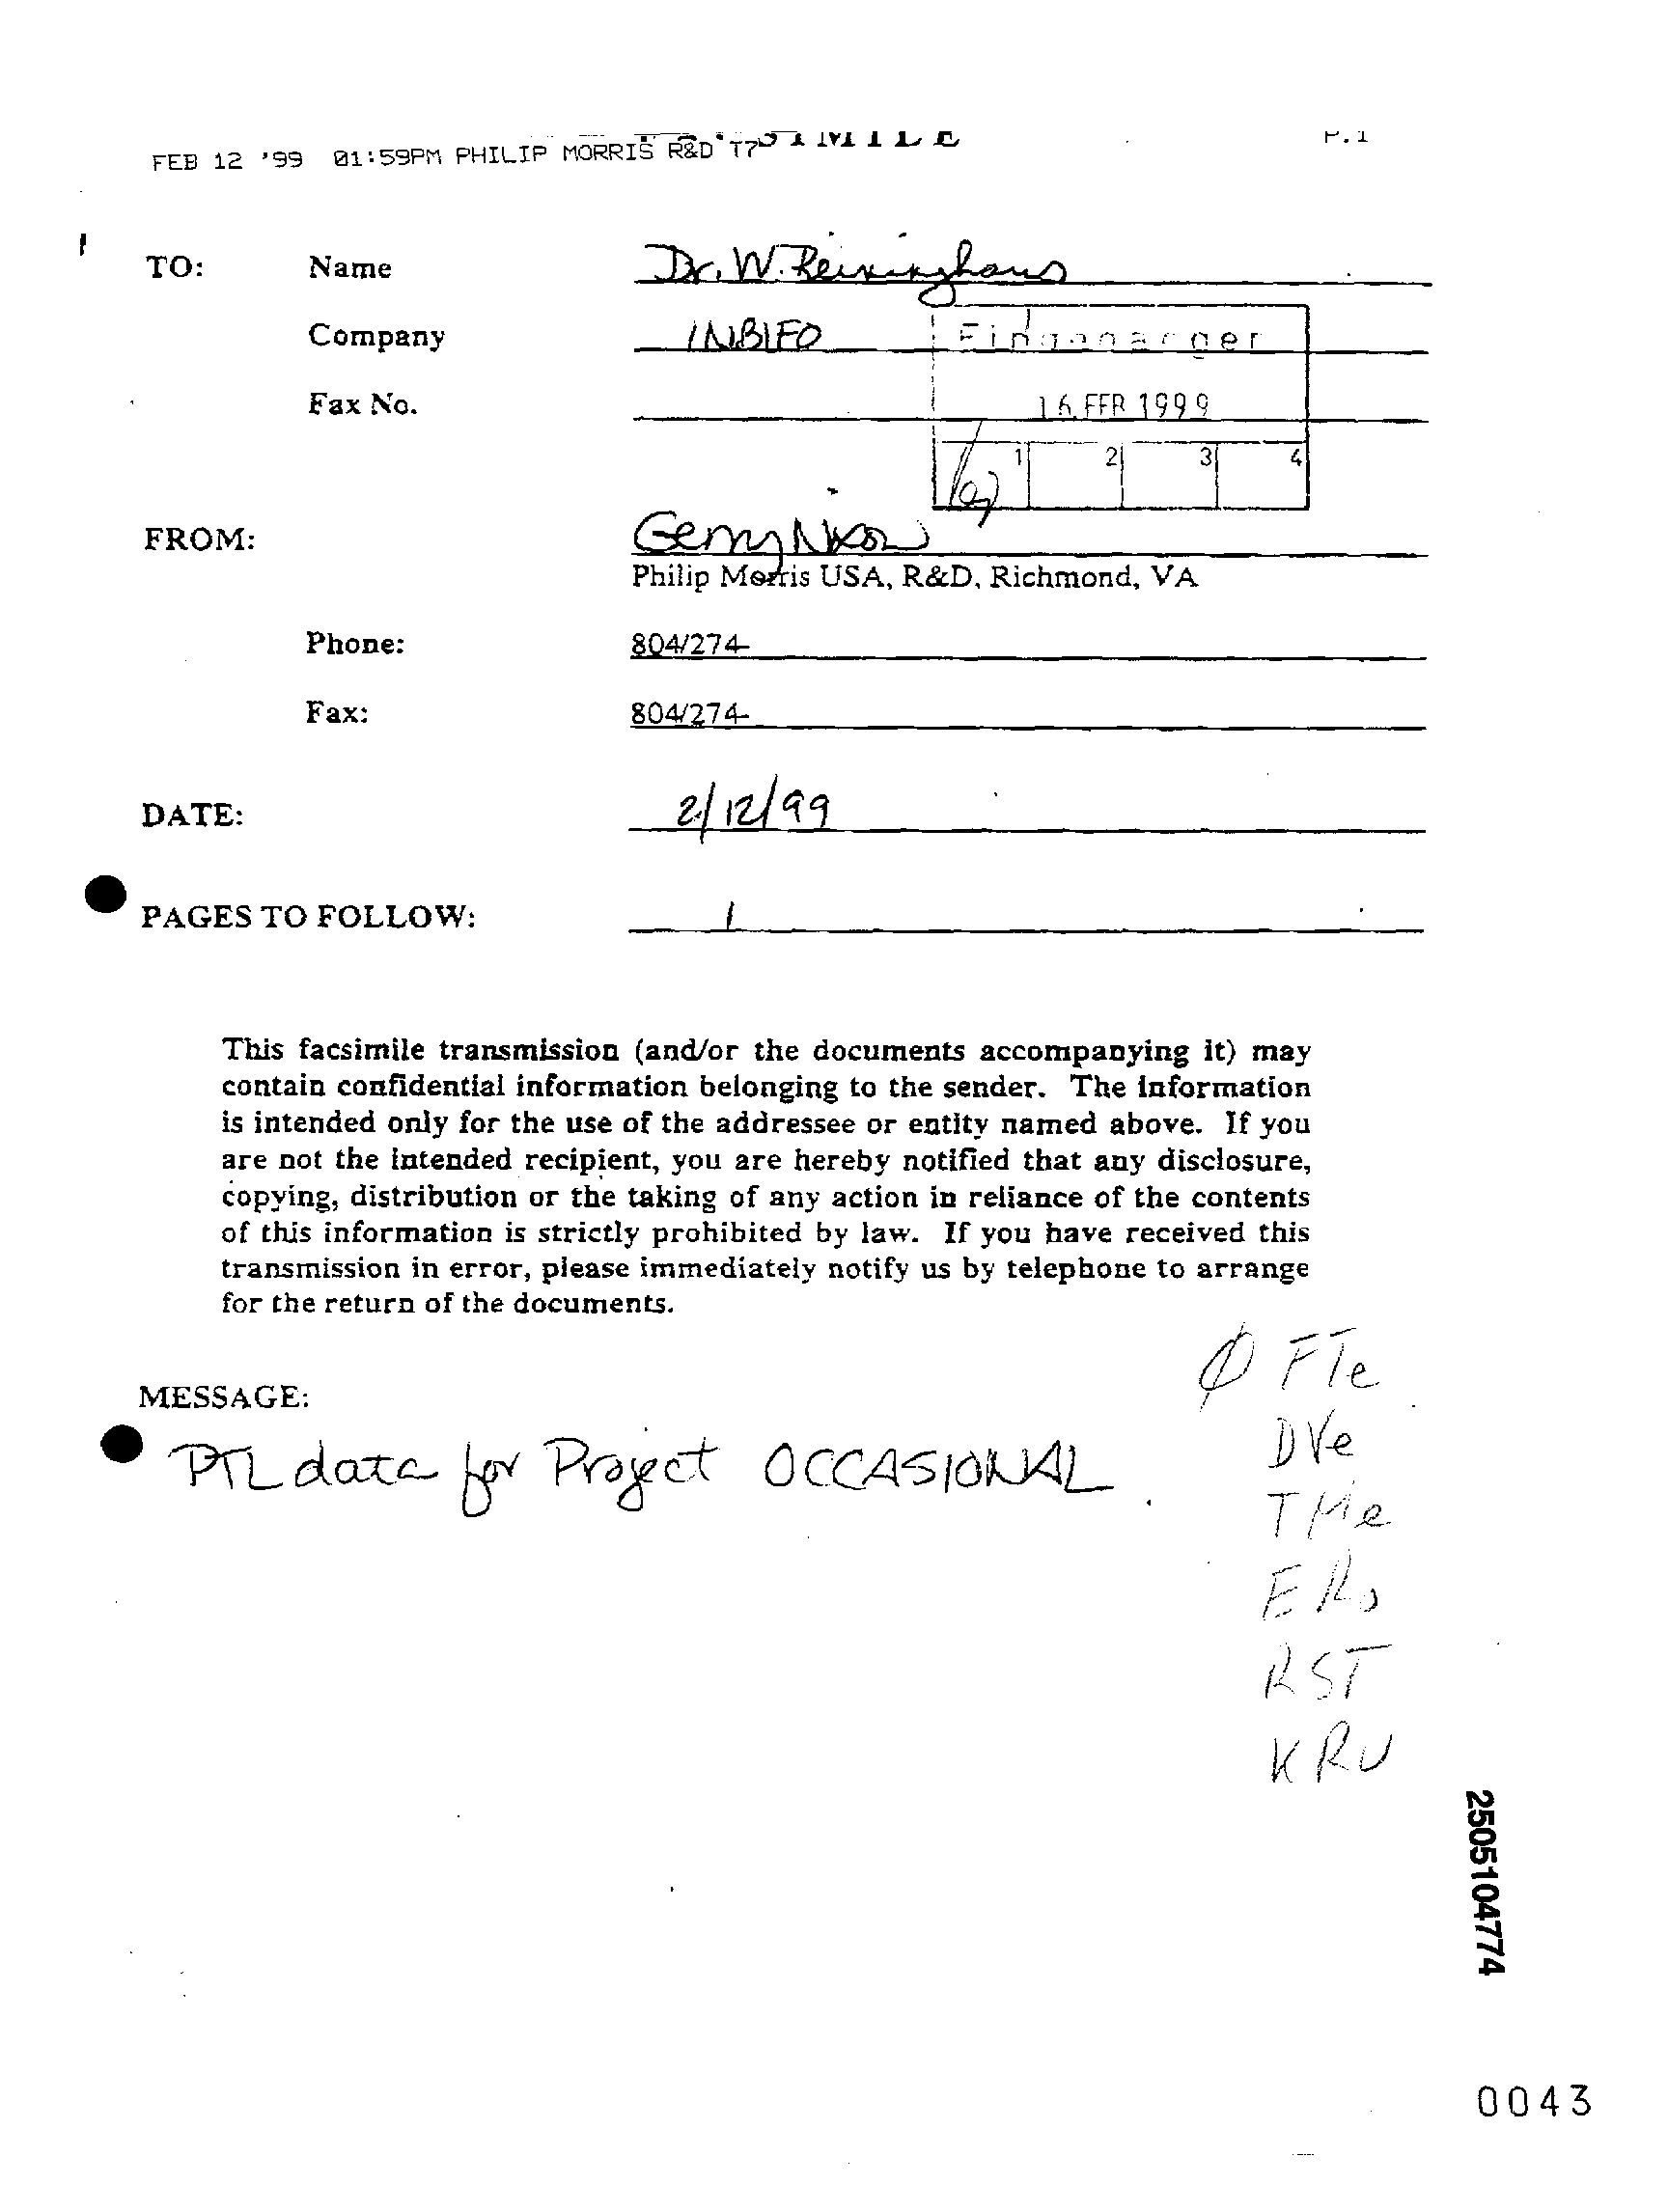 FEB 12 '99 01:59PM PHILIP MORRIS R&D T7 P.1
TO: Name Dr. W. Reininghaus
Company INBIFO
Fax No.
16. FEB 1999
1 2 3 4
FROM: Gerry Nixon
Philip Morris USA, R&D, Richmond, VA
Phone: 804/274-
Fax: 804/274-
DATE: 2/12/99
PAGES TO FOLLOW: 1
This facsimile transmission (and/or the documents accompanying it) may
contain confidential information belonging to the sender. The information
is intended only for the use of the addressee or entity named above. If you
are not the intended recipient, you are hereby notified that any disclosure,
copying, distribution or the taking of any action in reliance of the contents
of this information is strictly prohibited by law. If you have received this
transmission in error, please immediately notify us by telephone to arrange
for the return of the documents.
MESSAGE:
PTL data for Project OCCASIONAL.
Ø FTe
DVe
TMe
ERo
RST
KRU
2505104774
0043